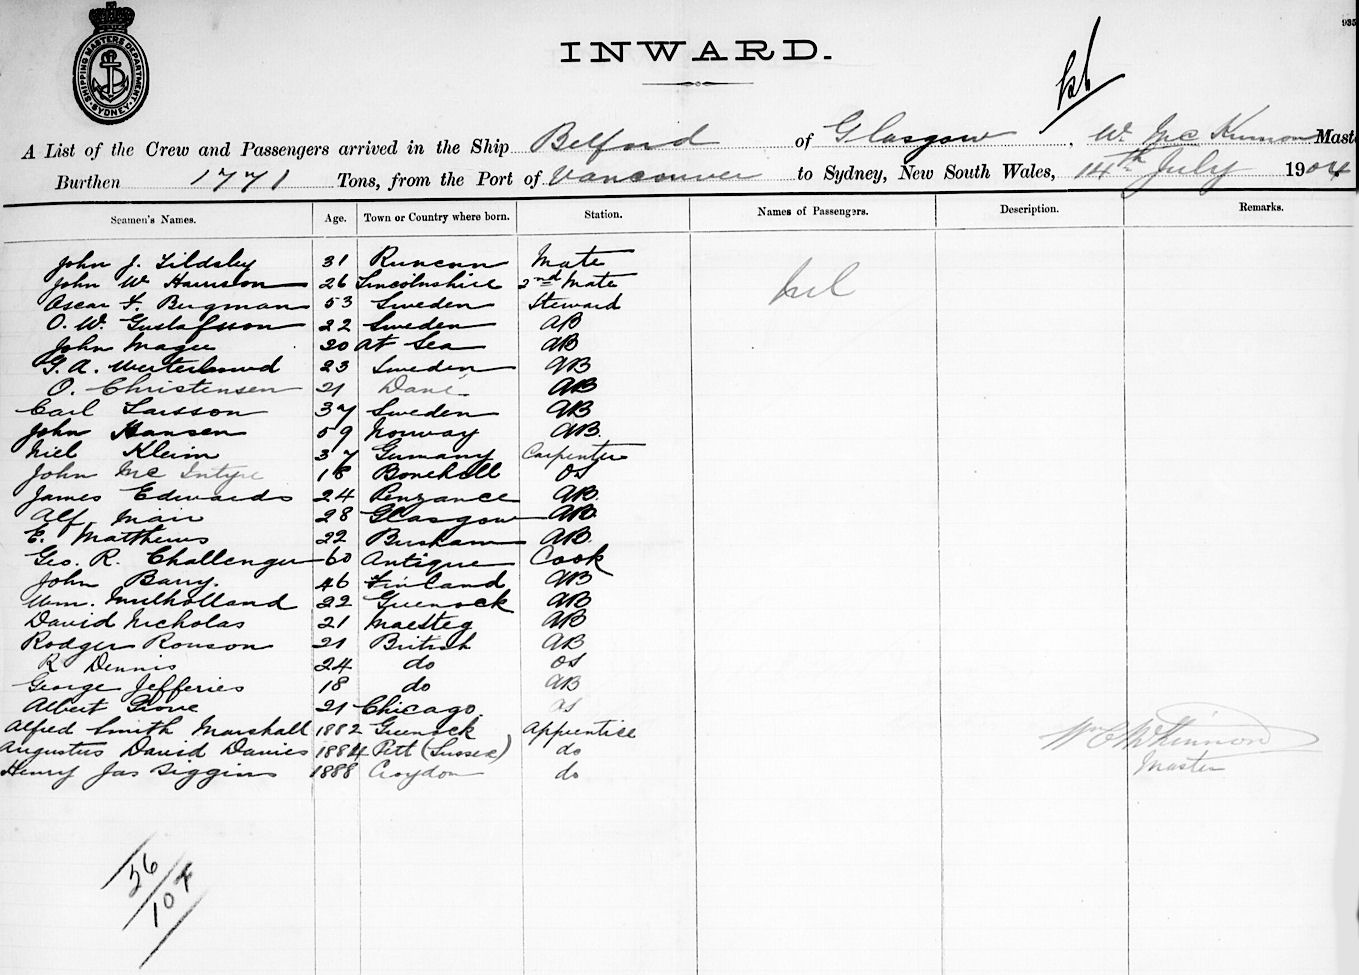 SHIPPING MASTERS DEPARTMENT SYDNEY
INWARD.
A List of the Crew and Passengers arrived in the Ship Belford of Glasgow, W. McKinnon Maste
Burthen 1771 Tons, from the Port of Vancouver to Sydney, New South Wales, 14th July 1904
Seamen's Names. Age. Town or Country where born. Station. Names of Passengers. Description. Remarks.
John J. Tildsley 31 Runcorn Mate
John W Harrison 26 Lincolnshire 2nd Mate
Oscar F. Bergman 53 Sweden Steward
O. W. Gustafsson 22 Sweden AB
John Magee 20 At Sea AB
G. A. 23 Sweden AB
O. Christensen 21 Dane AB
Carl Larsson 37 Sweden AB
John Hansen 59 Norway AB.
Niel Kleim 37 Germany Carpenter
John McIntyre 18 OS
James Edwards 24 Penzance AB
Alf. Mair 28 Glasgow AB
E. Matthews 22 AB.
Geo. R. Challenger 60 Antigua Cook
John Barry. 46 Finland AB
Wm. Mulholland 22 Greenock AB
David Nicholas 21 Maesteg AB
Rodger Rowson 21 British AB
R Dennis 24 do OS
George Jefferies 18 do AB
Albert 21 Chicago OS
Alfred Smith Marshall 1882 Greenock Apprentice
Augustus David Davies 1884 Pett (Sussex) do
Henry Jas Siggins 1888 Croydon do
nil
Wm C McKinnon
Master